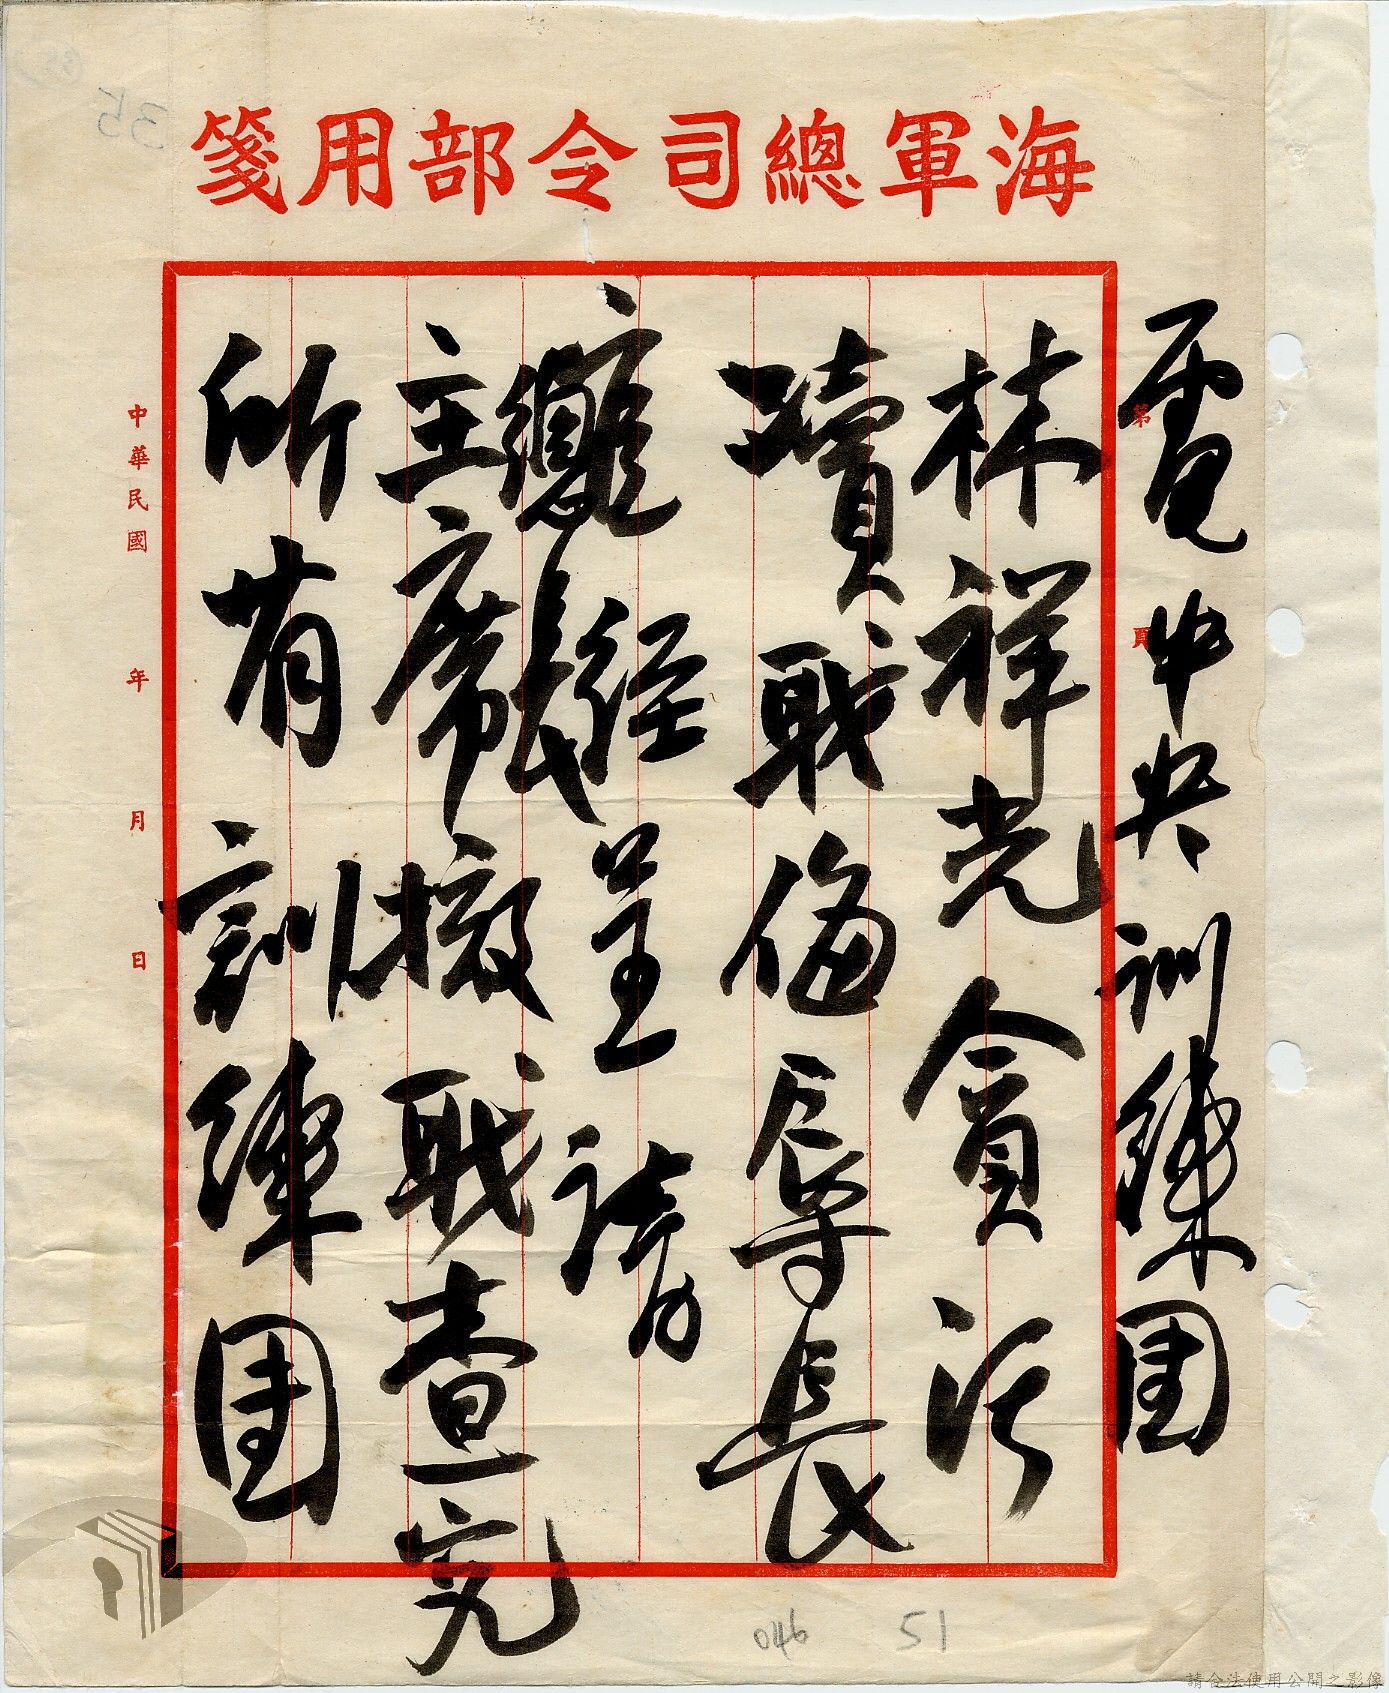 海軍總司令部用箋
第 頁
電中央訓練團
林祥光貪污
瀆職侮辱長
官經呈請
總長
主席撤職查究
所有訓練團
中華民國 年 月 日
046 51
35
請合法使用公開之影像